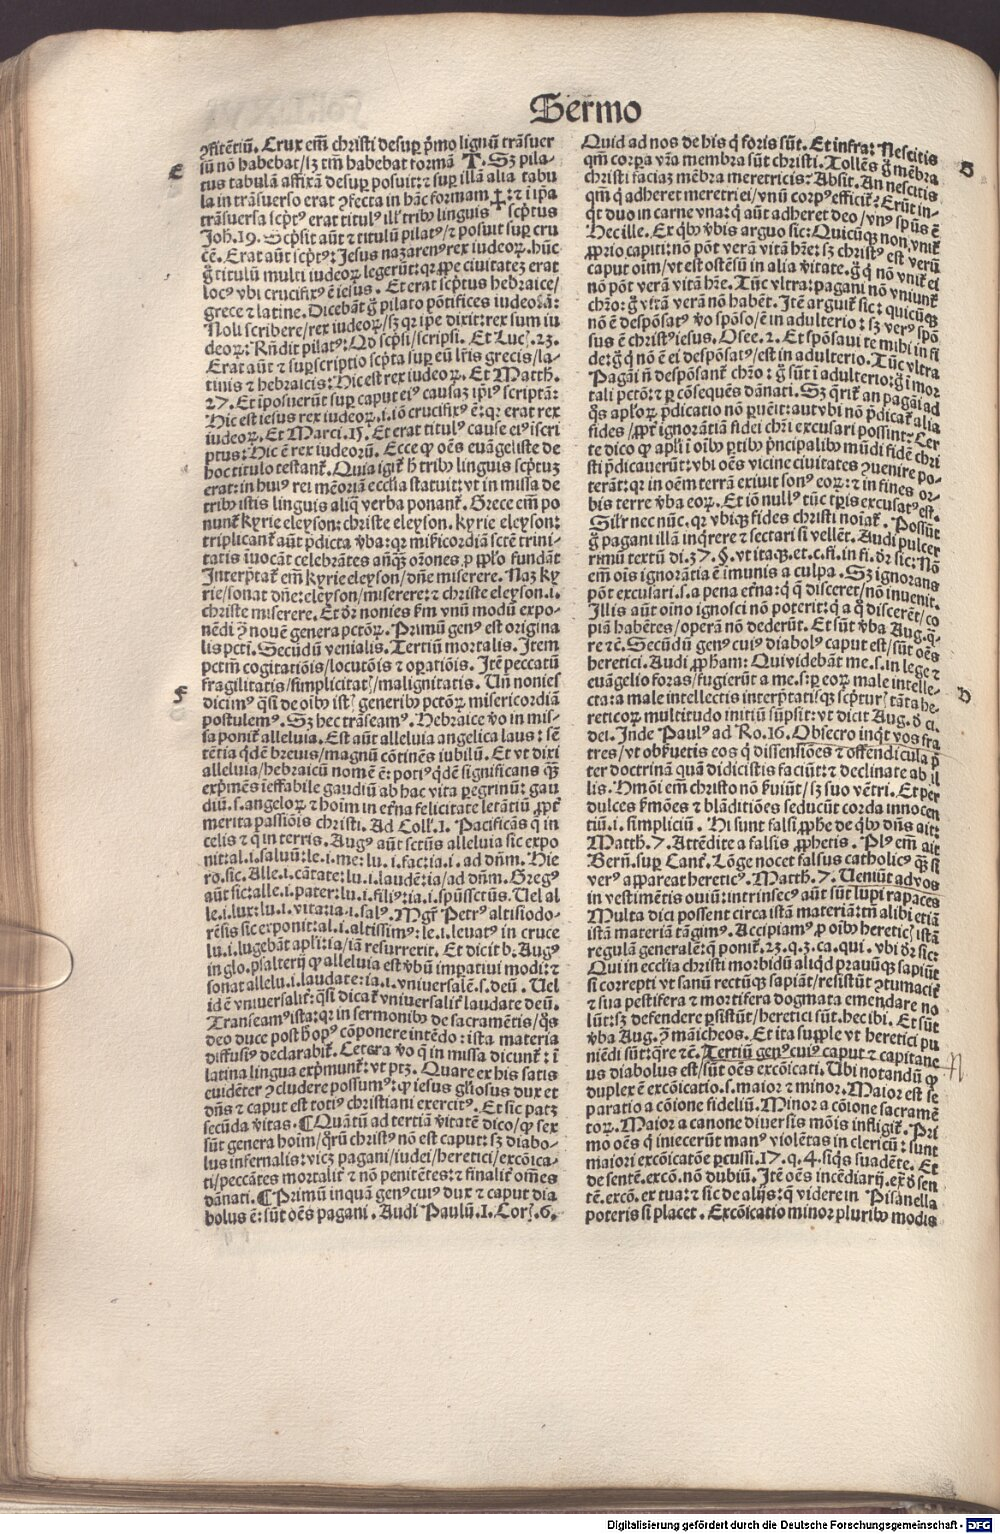 Sermo
ꝯfitẽtiũ. Crux em̃ christi desuꝑ p̃mo lignũ trãsuer
sũ nõ habebat/sꝫ tm̃ habebat formã T. Sꝫ pila-
tus tabulã affixã desuꝑ posuit: ⁊ suꝑ illã alia tabu
la in trãsuerso erat ꝯfecta in hãc formam ✝: ⁊ i ip̃a
trãsuersa scp̃tꝰ erat titulꝰ ill' tribꝰ linguis scp̃tus
Joh.19. Scp̃sit aũt ⁊ titulũ pilatꝰ/⁊ posuit suꝑ cru
cẽ. Erat aũt scp̃tꝰ: Jesus nazarenꝰ rex iudeoꝝ. hũc
g̃ titulũ multi iudeoꝝ legerũt: qꝛ ꝓpe ciuitateꝫ erat
locꝰ vbi crucifixꝰ ẽ iesus. Et erat scp̃tus hebraice/
grece ⁊ latine. Dicebãt g̃ pilato põtifices iudeoꝝ:
Noli scribere/rex iudeoꝝ/sꝫ qꝛ ip̃e dixit: rex sum iu
deoꝝ: Rñdit pilatꝰ: Qd̃ scp̃si/scripsi. Et Luc̃.23.
Erat aũt ⁊ suꝑscriptio scp̃ta suꝑ eũ l'ris grecis/la-
tinis ⁊ hebraicis: Hic est rex iudeoꝝ. Et Matth.
27. Et iposuerũt suꝑ caput eiꝰ causaꝫ ip̃iꝰ scriptã:
Hic est iesus rex iudeoꝝ.i. iõ crucifixꝰ ẽ: qꝛ erat rex
iudeoꝝ. Et Marci.15. Et erat titulꝰ cause eiꝰ iscri
ptus: Hic ẽ rex iudeorũ. Ecce ꝙ oẽs euãgeliste de
hoc titulo testant̃. Quia igit̃ h̃ tribꝰ linguis scp̃tuꝫ
erat: in huiꝰ rei mẽoriã ecclia statuit: vt in missa de
tribꝰ istis linguis aliq̃ verba ponant̃. Grece em̃ po
nunt̃ kyrie eleyson: christe eleyson. kyrie eleyson:
triplicant̃ aũt p̃dicta v̾ba: qꝛ mi'ricordiã sctẽ trini-
tatis iuocãt celebrãtes añq̃ꝫ orõnes ꝓ pp̃lo fundãt
Interp̃tat̃ em̃ kyrie eleyson/dñe miserere. Naꝫ ky
rie/sonat dñe: eleyson/miserere: ⁊ christe eleyson.i.
christe miserere. Et dr̃ nonies k̾m vnũ modũ expo-
nẽdi ꝓ nouẽ genera pctõꝝ. Primũ genꝰ est origina
lis pcti. Secũdũ venialis. Tertiũ mortalis. Item
pctm̃ cogitatiõis/locutõis ⁊ oꝑatiõis. Itẽ peccatũ
fragilitatis/simplicitatꝭ/malignitatis. Uñ nonies
dicimꝰ q̃si de oibꝰ istꝭ generibꝰ pctõꝝ misericordiã
postulemꝰ. Sꝫ hec trãseamꝰ. Hebraice v̾o in mis-
sa ponit̃ alleluia. Est aũt alleluia angelica laus: sẽ
tẽtia q̃dẽ breuis/magnũ cõtinẽs iubilũ. Et vt dixi
alleluia/hebraicũ nomẽ ẽ: potiꝰ q̃dẽ significans q̃ꝫ
exp̃mẽs ieffabile gaudiũ ab hac vita ꝑegrinũ: gau
diũ.s. angeloꝝ ⁊ hoĩm in et̾na felicitate letãtiũ ꝓpt̃
merita passiõis christi. Ad Coll'.1. Pacificãs q̃ in
celis ⁊ q̃ in terris. Augꝰ aũt sctũs alleluia sic expo
nit: al.i. saluũ: le.i. me: lu.i. fac: ia.i. ad dñm. Hie
ro. sic. Alle.i. cãtate: lu.i. laudẽ: ia/ad dñm. Gregꝰ
aũt sic: alle.i. pater: lu.i. filiꝰ: ia.i. sp̃ussctũs. Uel al
le.i. lux: lu.i. vita: ia.i. salꝰ. Mgr̃ Petrꝰ altisiodo-
rẽsis sic exponit: al.i. altissimꝰ: le.i. leuatꝰ in cruce
lu.i. lugebãt apl'i: ia/iã resurrexit. Et dicit b. Augꝰ
in glo. psalterij ꝙ alleluia est v̾bũ imꝑatiui modi: ⁊
sonat allelu.i. laudate: ia.i. vniuersalẽ.s. deũ. Uel
idẽ vniuersalit̾: q̃si dicat̃ vniuersalit̾ laudate deũ.
Transeamꝰ ista: qꝛ in sermonibꝰ de sacramẽtis/q̃s
deo duce post h' opꝰ cõponere intẽdo: ista materia
diffusiꝰ declarabit̃. Cetera v̾o q̃ in missa dicunt̃: ĩ
latina lingua exp̃munt̃: vt ptꝫ. Quare ex his satis
euidẽter ꝯcludere possumꝰ: ꝙ iesus gl'osus dux et
dñs ⁊ caput est totiꝰ christiani exercitꝰ. Et sic patꝫ
secũda v̾itas. ¶Quãtũ ad tertiã v̾itatẽ dico/ꝙ sex
sũt genera hoĩm/q̃rũ christꝰ nõ est caput: sꝫ diabo-
lus infernalis: vicꝫ pagani/iudei/heretici/excõica-
ti/peccãtes mortalit̾ ⁊ nõ penitẽtes: ⁊ finalit̾ om̃es
dãnati. ¶Primũ inquã genꝰ cuiꝰ dux ⁊ caput dia
bolus ẽ: sũt oẽs pagani. Audi Paulũ.1. Corꝭ.6.
E
F
Quid ad nos de his q̃ foris sũt. Et infra: Nescitis
qm̃ corꝑa vr̃a membra sũt christi. Tollẽs g̃ mẽbra
christi faciaꝫ mẽbra meretricis: Absit. An nescitis
qm̃ q̃ adheret meretrici/vnũ corpꝰ efficit̃? Erũt in-
q̃t duo in carne vna: q̃ aũt adheret deo/vnꝰ spũs ẽ
Hec ille. Ex q̃bꝰ v̾bis arguo sic: Quicũqꝫ non vnit̃
ꝓprio capiti: nõ põt verã vitã hr̃e: sꝫ christꝰ est verũ
caput oĩm/vt est ostẽsũ in alia v̾itate. g̃ q̃ nõ vnit̃ ei
nõ põt verã vitã hr̃e. Tũc vltra: pagani nõ vniunt̃
chr̃o: g̃ vitã verã nõ habẽt. Itẽ arguit̃ sic: quicũqꝫ
nõ ẽ despõsatꝰ v̾o spõso/ẽ in adulterio: sꝫ verꝰ spõ
sus ẽ christꝰ iesus. Osee.2. Et spõsaui te mihi in fi
de: g̃ q̃ nõ ẽ ei despõsatꝰ/est in adulterio. Tũc vltra
Pagãi ñ despõsant̃ chr̃o: g̃ sũt ĩ adulterio: g̃ ĩ mor
tali pctõ: ⁊ ꝑ cõsequẽs dãnati. Sꝫ q̃rit̃ an pagãi ad
q̃s apl'oꝝ p̃dicatio nõ ꝑuẽit: aut vbi nõ p̃dicat̃ alia
fides/ꝓpt̃ ignorãtiã fidei chr̃i excusari possint: Cer
te dico ꝙ apl'i ĩ oĩbꝰ ꝑtibꝰ p̃ncipalibꝰ mũdi fidẽ chri
sti p̃dicauerũt: vbi oẽs vicine ciuitates ꝯuenire po-
terãt: qꝛ in oẽm terrã exiuit sonꝰ eoꝝ: ⁊ in fines or-
bis terre v̾ba eoꝝ. Et iõ nullꝰ tũc tp̃is excusatꝰ est.
Sil'r nec nũc. qꝛ vbiqꝫ fides christi noĩat̃. Possũt
g̃ pagani illã inq̃rere ⁊ sectari si vellẽt. Audi pulcer
rimũ textũ di.37.§. vt itaqꝫ. et.c.fi. in fi. dr̃ sic: Nõ
em̃ oĩs ignorãtia ẽ imunis a culpa. Sꝫ ignorans
põt excusari.s. a pena et̾na: q̃ q̃ disceret/nõ inuenit.
Illis aũt oĩno ignosci nõ poterit: q̃ a q̃ discerẽt/co
piã habẽtes/operã nõ dederũt. Et sũt v̾ba Aug. q̃-
re ⁊c̃. Secũdũ genꝰ cuiꝰ diabolꝰ caput est/sũt oẽs
heretici. Audi ꝓpham: Qui videbãt me.s. in lege ⁊
euãgelio foras/fugierũt a me.s. ꝑ eoꝝ male intelle-
cta: a male intellectis interp̃tatisqꝫ scp̃turꝭ tãta he-
reticoꝝ multitudo initiũ sũpsit: vt dicit Aug. d̾ ci.
dei. Inde Paulꝰ ad Ro.16. Obsecro inq̃t vos fra
tres/vt obs̾uetis eos q̃ dissensiões ⁊ offendicula p̃
ter doctrinã quã didicistis faciũt: ⁊ declinate ab il
lis. Hmõi em̃ christo nõ s̾uiũt/sꝫ suo vẽtri. Et per
dulces s̾mões ⁊ blãditiões seducũt corda innocen
tiũ.i. simpliciũ. Hi sunt falsi ꝓphe de q̃bꝰ dñs ait:
Matth.7. Attẽdite a falsis ꝓphetis. Plꝰ em̃ ait
Berñ. suꝑ Cant̃. Lõge nocet falsus catholicꝰ q̃ꝫ si
verꝰ appareat hereticꝰ. Matth.7. Ueniũt ad vos
in vestimẽtis ouiũ: intrinsecꝰ aũt sũt lupi rapaces
Multa dici possent circa istã materiã: tñ alibi etiã
istã materiã tãgimꝰ. Accipiamꝰ ꝓ oĩbꝰ hereticꝭ istã
regulã generalẽ: q̃ ponit̃.23.q.3.ca. qui. vbi dr̃ sic:
Qui in ecclia christi morbidũ aliq̃d prauũqꝫ sapiũt
si correpti vt sanũ rectũqꝫ sapiãt/resistũt ꝯtumacit̾
⁊ sua pestifera ⁊ mortifera dogmata emendare no
lũt: sꝫ defendere ꝑsistũt/heretici sũt. hec ibi. Et sũt
v̾ba Aug. ꝯ̃ maĩcheos. Et ita supple vt heretici pu
niẽdi sũt: q̃re ⁊c̃. Tertiũ genꝰ cuiꝰ caput ⁊ capitane
us diabolus est/sũt oẽs excõicati. Ubi notandũ ꝙ
duplex ẽ excõicatio.s. maior ⁊ minor. Maior est se
paratio a cõione fideliũ. Minor a cõione sacramẽ
toꝝ. Maior a canone diuersis mõis infligit̃. Pri
mo oẽs q̃ iniecerũt manꝰ violẽtas in clericũ: sunt
maiori excõicatõe ꝑcussi.17.q.4. siq̃s suadẽte. Et
de sentẽ. excõ. nõ dubiũ. Itẽ oẽs incẽdiarij. ex̃ d̾ sen
tẽ. excõ. ex tua: ⁊ sic de alijs: q̃ videre in Pisanella
poteris si placet. Excõicatio minor pluribꝰ modis
D
Digitalisierung gefördert durch die Deutsche Forschungsgemeinschaft - DFG